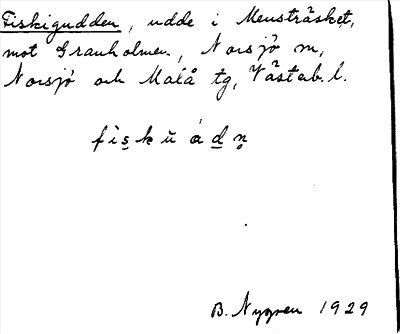 Fiskigudden, udde i Mensträsket,
mot Granholmen, Norsjö sn,
Norsjö och Malå tg, Västerb. l.
fìs̱kŭ á ḏ n̥
B. Nygren 1929